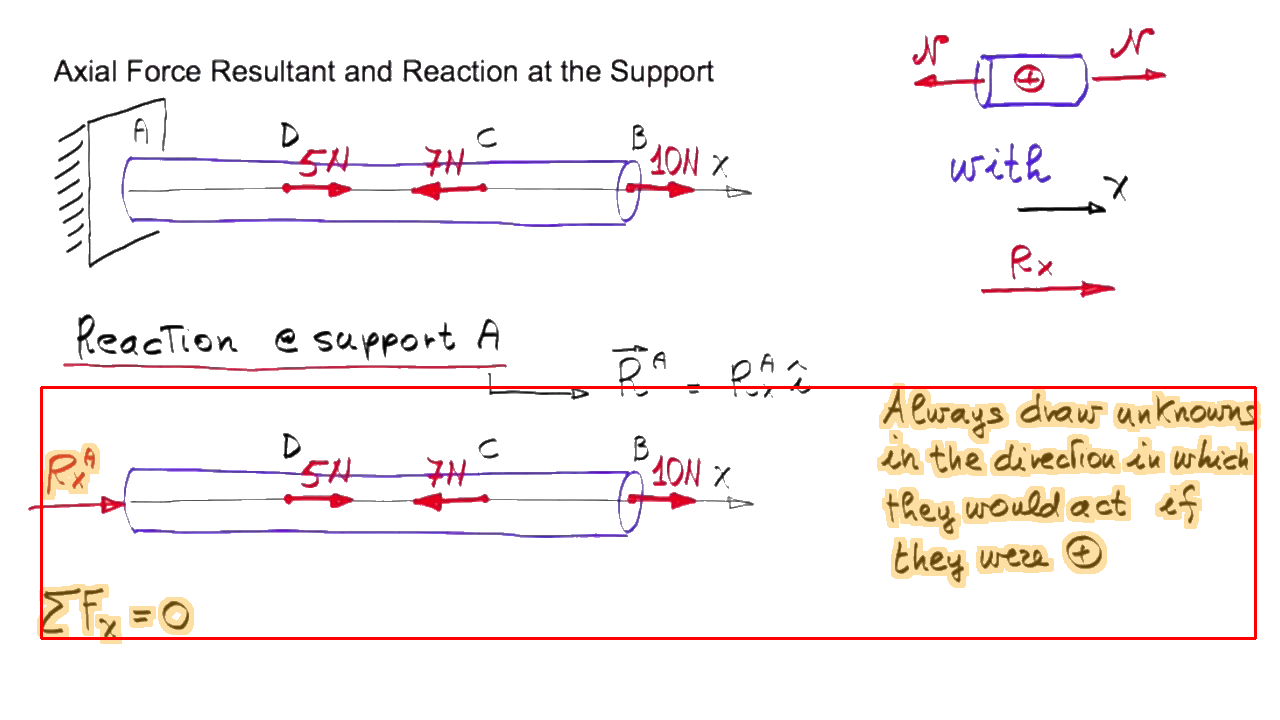 Axial Force Resultant and Reaction at the Support
N N
⊕
A D 5N 7N C B 10N x
with
x
Rx
Reaction @ support A
R⃗ᴬ = Rₓᴬ î
Rₓᴬ D 5N 7N C B 10N x
Always draw unknowns
in the direction in which
they would act if
they were ⊕
ΣFₓ = 0